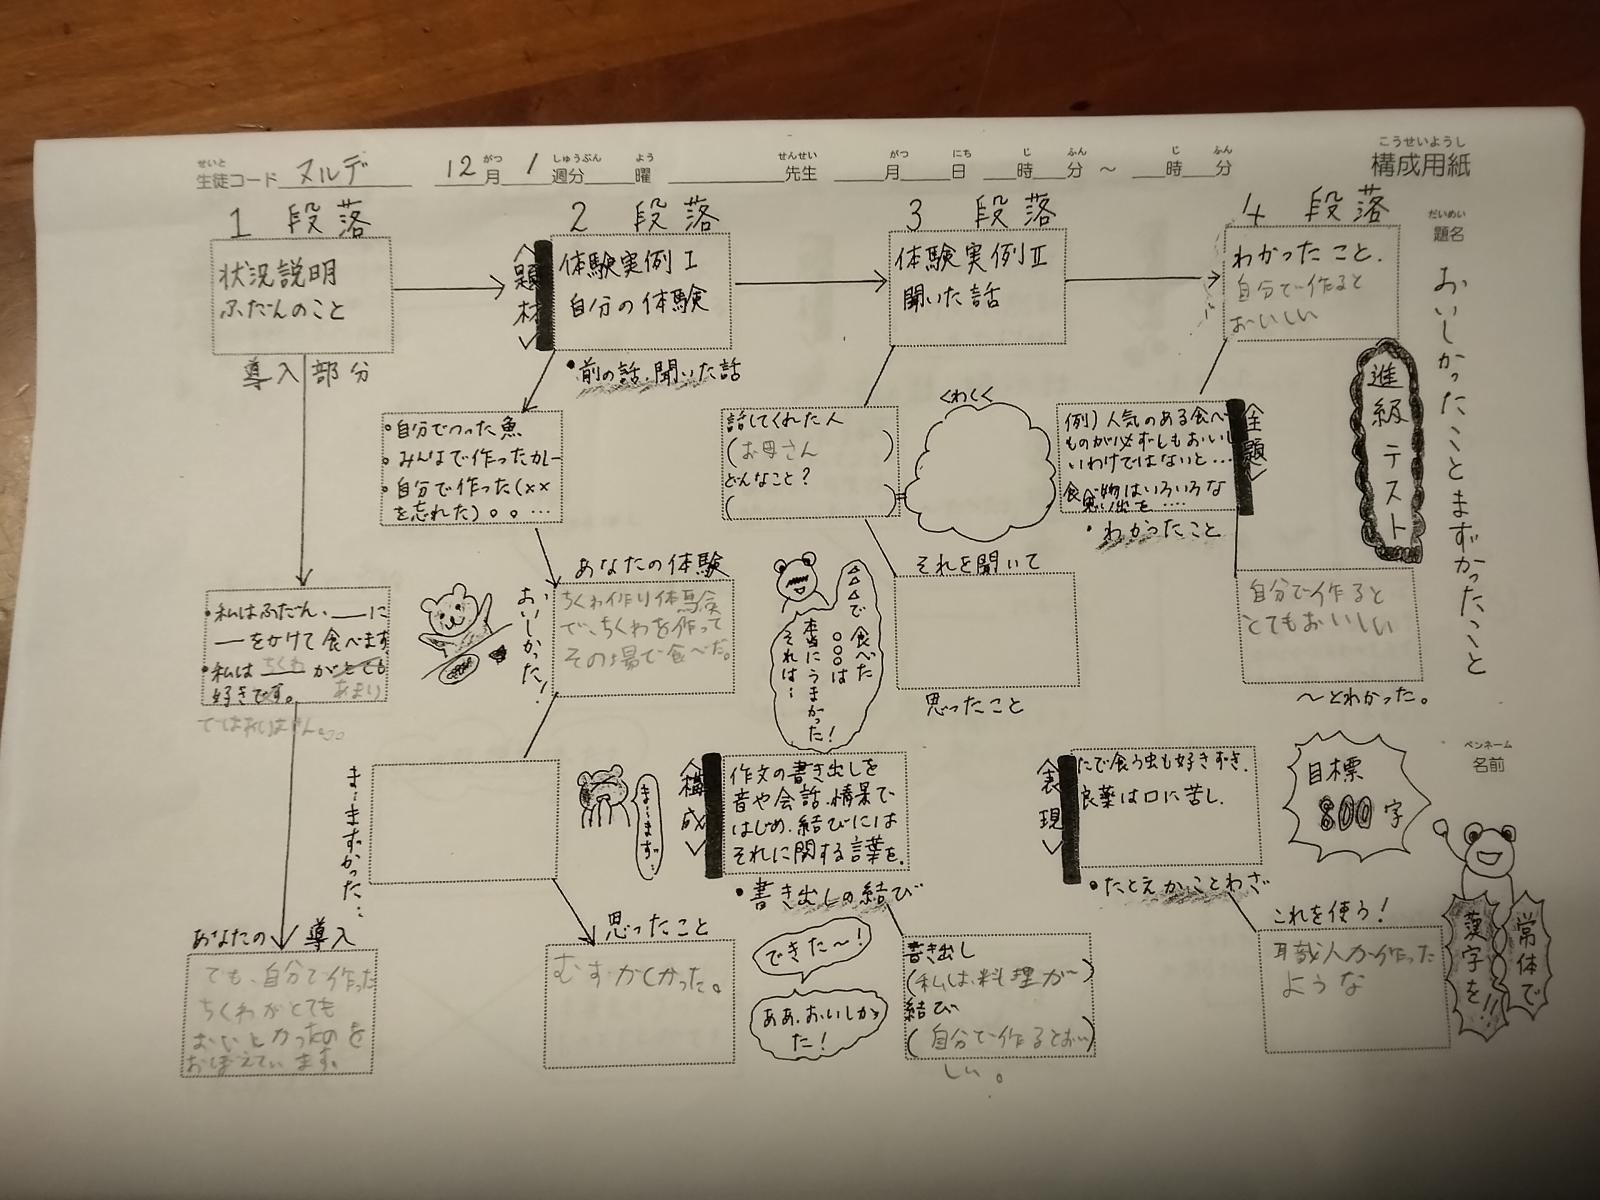 構成用紙
こうせいようし
せいと
生徒コード ヌルデ 12月 1 週分 曜 先生 月 日 時 分 ～ 時 分
がつ しゅうぶん よう せんせい がつ にち じ ふん じ ふん
だいめい
題名
おいしかったことまずかったこと
進級テスト
ペンネーム
名前
目標
800字
漢字を!!
常体で
1 段落
状況説明
ふだんのこと
導入部分
・私はふだん、__に
ーをかけて食べます
・私はちくわがとても
あまり
好きです。
ではありません。
あなたの導入
でも、自分で作った
ちくわがとても
おいしかったのを
おぼえています。
2 段落
<題材>
体験実例Ⅰ
自分の体験
・前の話、聞いた話
・自分でつった魚
・みんなで作ったカレー
・自分で作った(××
を忘れた)。。…
あなたの体験
おいしかった!
ちくわ作り体験
で、ちくわを作って
その場で食べた。
ま…まずかった…
ま…まずっ…
思ったこと
むずかしかった。
3 段落
体験実例Ⅱ
聞いた話
話してくれた人
(お母さん)
どんなこと?
くわしく
それを聞いて
思ったこと
△△で食べた
○○○は
本当にうまかった!
それは…
<構成>
作文の書き出しを
音や会話、情景で
はじめ、結びには
それに関する言葉を。
・書き出しの結び
できた～!
ああ、おいしかっ
た!
書き出し
(私は、料理が～)
結び
(自分で作るとおい
しい。
4 段落
わかったこと.
自分で作ると
おいしい
<主題>
例)人気のある食べ
ものが必ずしもおいし
いわけではないと…
食べ物はいろいろな
思い出を….
・わかったこと
自分で作ると
とてもおいしい
～とわかった。
<表現>
たで食う虫も好きずき.
良薬は口に苦し.
・たとえか、ことわざ
これを使う!
職人が作った
ような